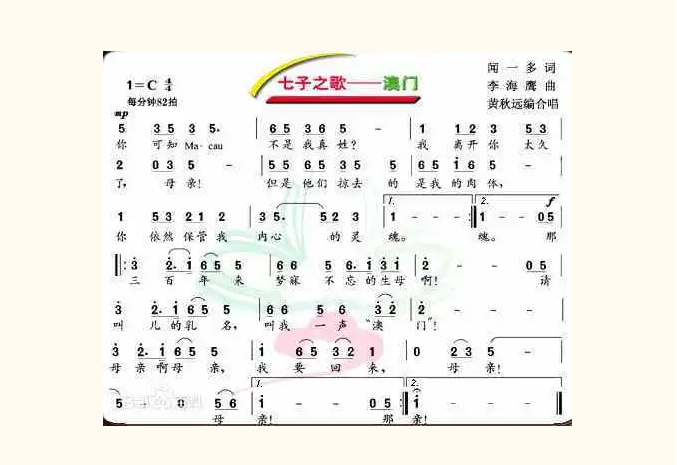 七子之歌——澳门
闻一多词
李海鹰曲
黄秋远编合唱
1=C 4/4
每分钟82拍
mp
5 35 35. | 65 365 - | 1 12 3 53
你 可知 Ma-cau 不是我真姓? 我 离开你 太久
2 035 - | 55 65 35 5 | 65 16 5 -
了, 母亲! 但是他们掠去的 是我的肉体,
1. 2. f
1 53 21 2 | 35. 523 | 1 - - - :| 1 - - 05
你 依然保管我 内心 的灵 魂。 魂。 那
3 2.1 65 5 | 66 5 6.131 | 2 - - 05
三百年来 梦寐不忘的生母啊! 请
3 2.1 65 5 | 66 56 5 32 | 2 - - -
叫儿的乳名, 叫我一声“澳门”!
3 2.1 65 5 | 1 65 32 1 | 0 23 5 -
母亲啊母亲, 我要回来, 母亲!
1. 2.
5 - 0 56 | 1 - - 05 :| 1 - - -
母 亲! 那 亲!